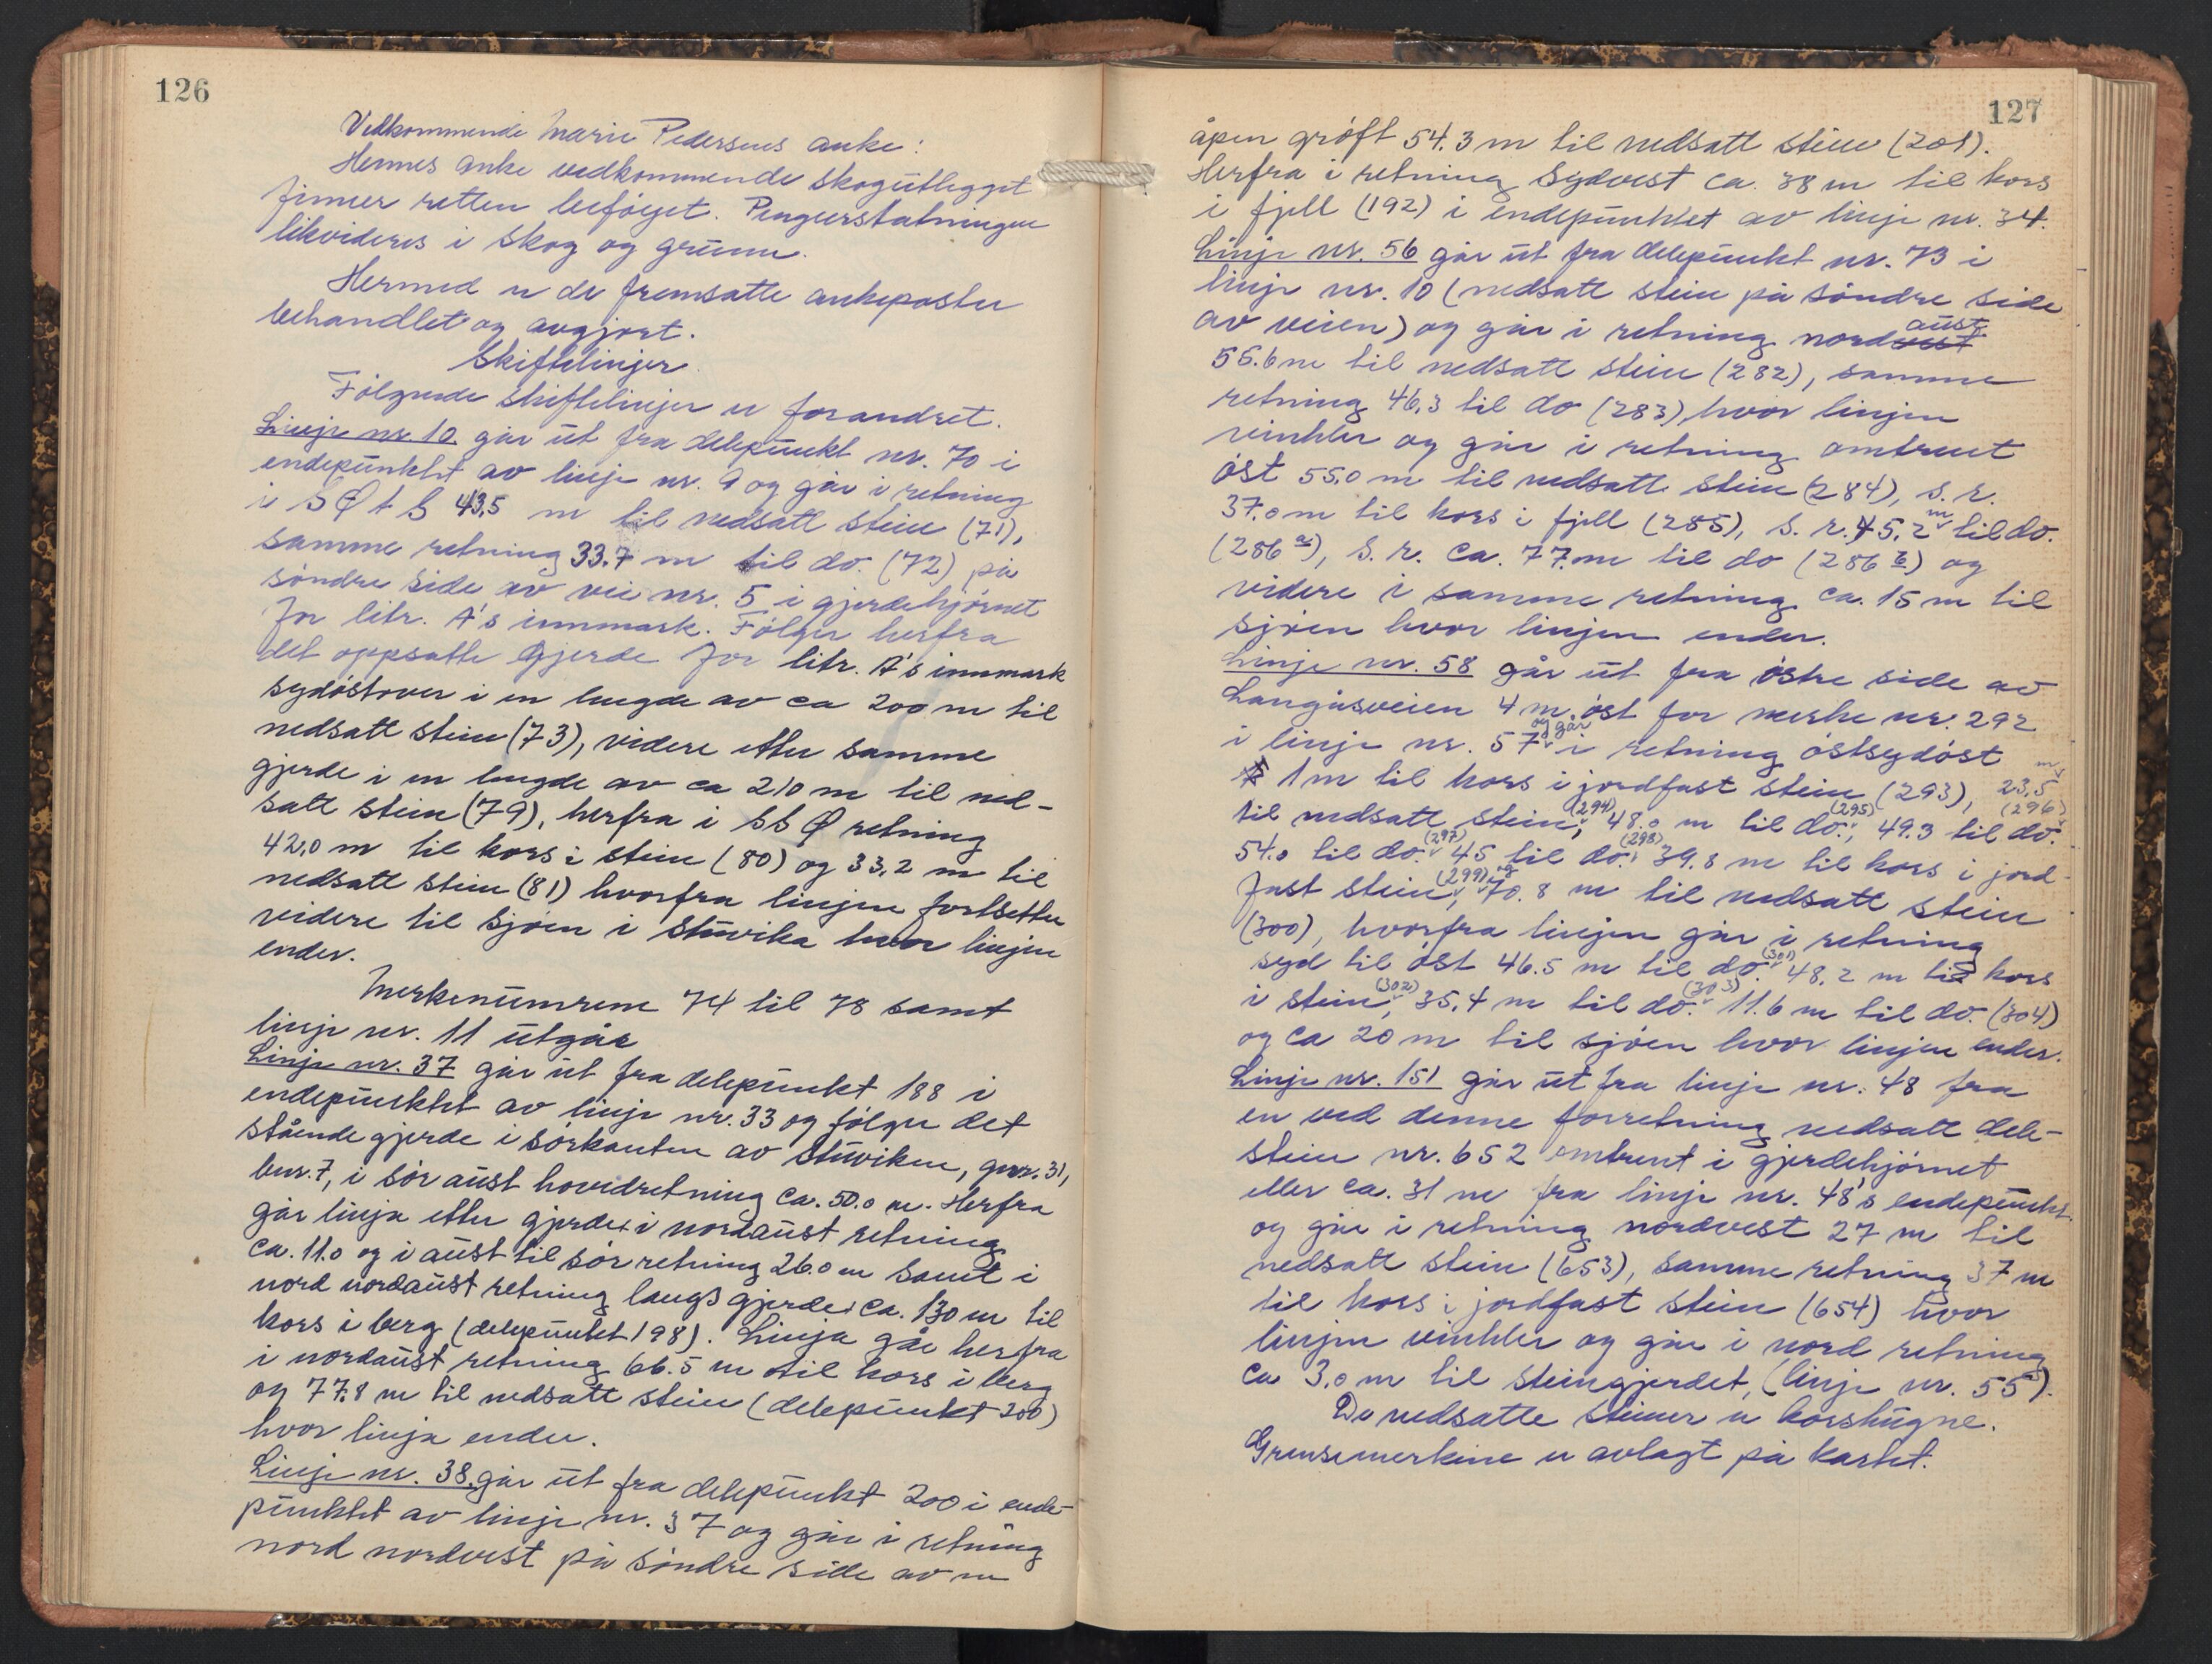 126
Vedkommende Marie Pedersens anke:
Hennes anke vedkommende skogutlegget
finner retten beføiet. Pengeerstatningen
likvideres i skog og grunn.
Hermed er de fremsatte ankeposter
behandlet og avgjort.
Skiftelinjer
Følgende skiftelinjer er forandret.
Linje nr. 10 går ut fra delepunkt nr. 70 i
endepunktet av linje nr. 9 og går i retning
i SØ t S 43,5 m til nedsatt stein (71),
samme retning 33.7 m til do. (72) på
søndre side av vei nr. 5 i gjerdehjørnet
for litr. A's innmark. Følger herfra
det oppsatte gjerde for litr. A's innmark
sydøstover i en lengde av ca 200 m til
nedsatt stein (73), videre etter samme
gjerde i en lengde av ca 210 m til ned-
satt stein (79), herfra i SSØ retning
42,0 m til kors i stein (80) og 33,2 m til
nedsatt stein (81) hvorfra linjen fortsetter
videre til sjøen i Stuvika hvor linjen
ender.
Merkenumrene 74 til 78 samt
linje nr. 11 utgår
Linje nr. 37 går ut fra delepunkt 188 i
endepunktet av linje nr. 33 og følger det
stående gjerde i sørkanten av Stuviken, gnr. 31,
bnr. 7, i sør aust hovedretning ca. 50.0 m. Herfra
går linja etter gjerdet i nordaust retning
ca. 11.0 og i aust til sør retning 26.0 m samt i
nord nordaust retning langs gjerdet ca. 130 m til
kors i berg (delepunktet 198). Linja går herfra
i nordaust retning 66.5 m til kors i berg
og 77.8 m til nedsatt stein (delepunkt 200)
hvor linja ender.
Linje nr. 38. går ut fra delepunkt 200 i ende-
punktet av linje nr. 37 og går i retning
nord nordvest på søndre side av en
127
åpen grøft 54.3 m til nedsatt stein (201).
Herfra i retning Sydvest ca. 38 m til kors
i fjell (192) i endepunktet av linje nr. 34.
Linje nr. 56 går ut fra delepunkt nr. 73 i
linje nr. 10 (nedsatt stein på søndre side
av veien) og går i retning nordvest aust
56.6 m til nedsatt stein (282), samme
retning 46,3 til do (283), hvor linjen
vinkler og går i retning omtrent
øst 55.0 m til nedsatt stein (284), s. r.
37.0 m til kors i fjell (285), s. r. 45.2 m til do.
(286 a), s. r. ca. 77. m til do (286 b) og
videre i samme retning ca. 15 m til
sjøen hvor linjen ender.
Linje nr. 58 går ut fra østre side av
Langåsveien 4 m. øst for merke nr. 292
i linje nr. 57 og går i retning østsydøst
1 m til kors i jordfast stein (293), 23,5 m
til nedsatt stein (294), 48.0 m til do. (295), 49.3 til do. (296)
54.0 til do. (297) 45 til do. (298) 39.8 m til kors i jord-
fast stein (299), og 70.8 m til nedsatt stein
(300), hvorfra linjen går i retning
syd til øst 46.5 m til do. (301) 48.2 m til kors
i stein (302), 35.4 m til do. (303) 11.6 m til do. (304)
og ca 20 m til sjøen hvor linjen ender.
Linje nr. 151 går ut fra linje nr. 48 fra
en ved denne forretning nedsatt dele-
stein nr. 652 omtrent i gjerdehjørnet
eller ca. 31 m fra linje nr. 48's endepunkt
og går i retning nordvest 27 m til
nedsatt stein (653), samme retning 37 m
til kors i jordfast stein (654) hvor
linjen vinkler og går i nord retning
ca 3.0 m til steingjerdet, (linje nr. 55).
De nedsatte steiner er korshugne.
Grensemerkene er avlagt på kartet.